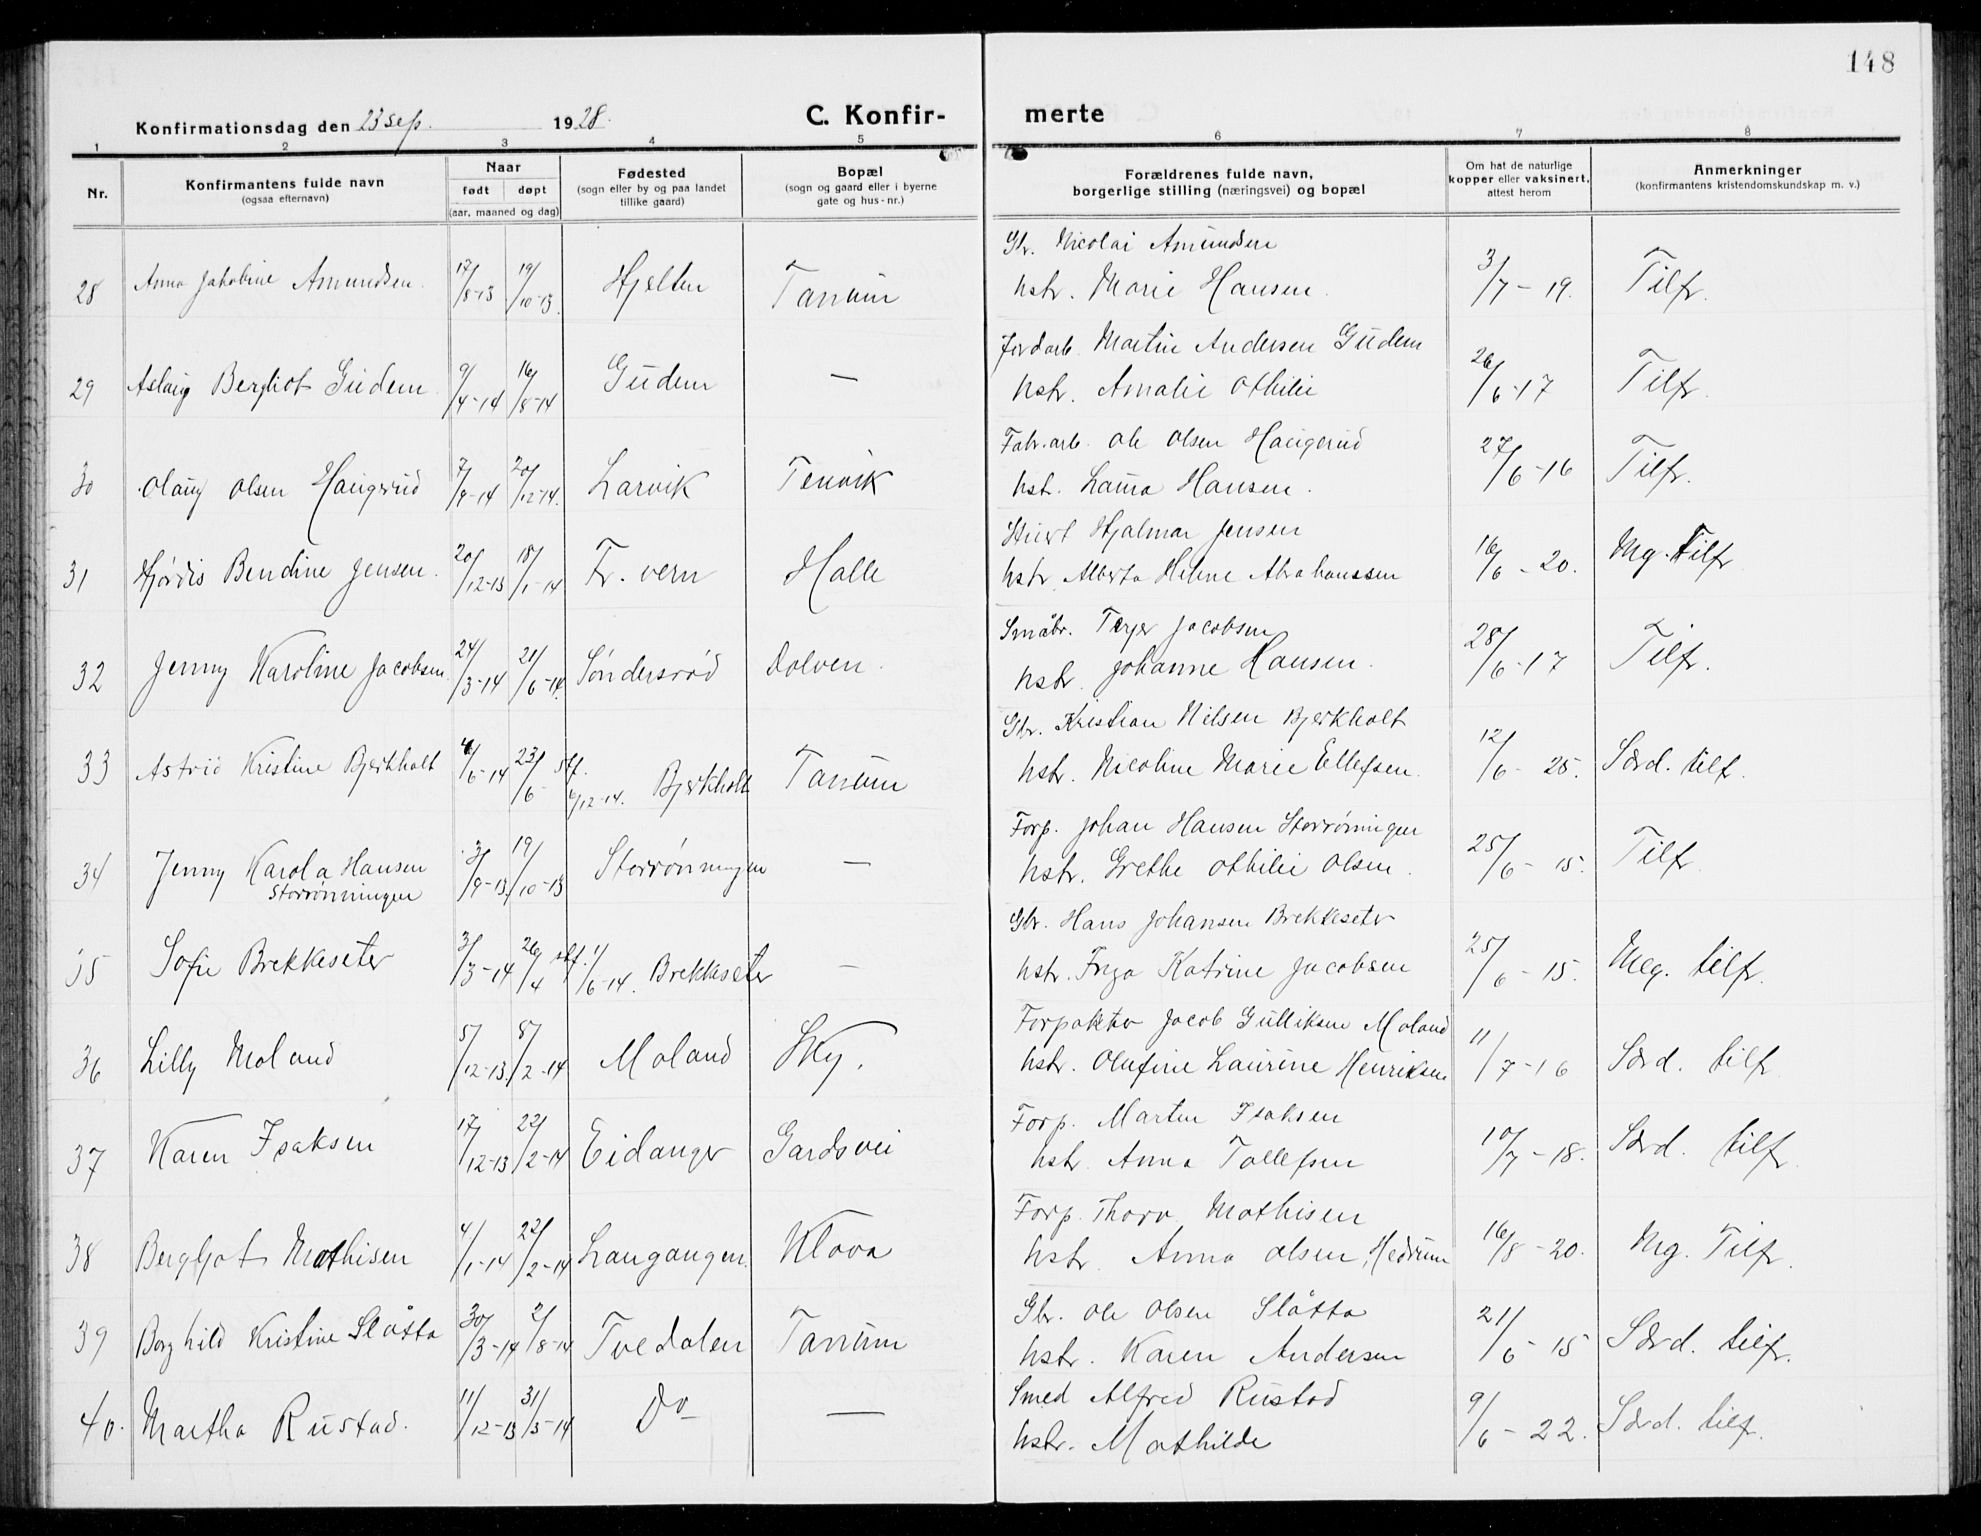 148
Konfirmationsdag den 23 sep. 1928. C. Konfir- merte
1 2 3 4 5 6 7 8
Nr. Konfirmantens fulde navn (ogsaa efternavn) Naar født døpt (aar, maaned og dag) Fødested (sogn eller by og paa landet tillike gaard) Bopæl (sogn og gaard eller i byerne gate og hus-nr.) Forældrenes fulde navn, borgerlige stilling (næringsvei) og bopæl Om hat de naturlige kopper eller vaksinert, attest herom Anmerkninger (konfirmantens kristendomskundskap m. v.)
Gbr. Nicolai Amundsen
28 Anna Jakobine Amundsen. 17/8-13 19/10-13. Hjelten Tanum hstr. Marie Hansen. 3/7-19. Tilfr.
Jordarb. Martin Andersen Gudem
29 Aslaug Bergliot Gudem 9/4-14 16/8-14 Gudem — hstr. Amalie Othilie 26/6-17 Tilfr.
Fabr.arb. Ole Olsen Haugerud
30 Olaug Olsen Haugerud 7/9-14 20/12-14. Larvik Tenvik hstr. Laura Hansen. 27/6-16 Tilfr.
Hjalmar Jensen
31 Hjørdis Bendine Jensen. 20/12-13 18/1-14 Fr. vern Halle hstr. Alberta Helene Abrahamssen 16/6-20. Mg. Tilfr
Småbr. Terje Jacobsen
32 Jenny Karoline Jacobsen 24/3-14 21/6-14. Søndersrød Dolven. hstr. Johanne Hansen. 28/6-17 Tilfr.
Gbr. Kristian Nilsen Bjerkholt
33 Astrid Kristine Bjerkholt 4/6-14 23/6 stf. 6/12-14. Bjerkholt Tanum hstr. Nicoline Marie Ellefsen. 12/6-25. Særd. tilf.
Forp. Johan Hansen Storrønningen
34 Jenny Karola Hansen 3/9-13. 19/10-13 Storrønningen — hstr. Grethe Othilie Olsen. 25/6-15. Tilfr
Storrønningen
Gbr. Hans Johansen Brekkeseter
35 Sofie Brekkeseter 3/3-14 26/4 stf. 1/6-14. Brekkeseter — hstr. Inga Katrine Jacobsen 25/6-15. Meg. tilfr.
Forpakter Jacob Gulliksen Moland
36 Lilly Moland 5/12-13. 8/2-14 Moland Sky. hstr. Olufine Laurine Henriksen 11/7-16 Særd. tilfr
Forp. Martin Isaksen
37 Karen Isaksen 17/12-13 22/2-14 Eidanger Gardsvei hstr. Anna Tollefsen 10/7-18. Særd. tilfr.
Forp. Thorv. Mathisen
38 Bergljot Mathisen 4/1-14 22/2-14 Langangen. Klova hstr. Anna Olsen, Hedrum 16/8-20. Mg. Tilfr.
Gbr. Ole Olsen Slåtta
39 Borghild Kristine Slåtta 30/3-14 2/8-14 Tvedalen Tanum hstr. Karen Andersen 21/6-15 Særd. tilfr.
Smed Alfred Rustad
40. Martha Rustad. 11/12-13 31/5-14 Do — hstr. Mathilde 9/6-22. Særd. tilfr.